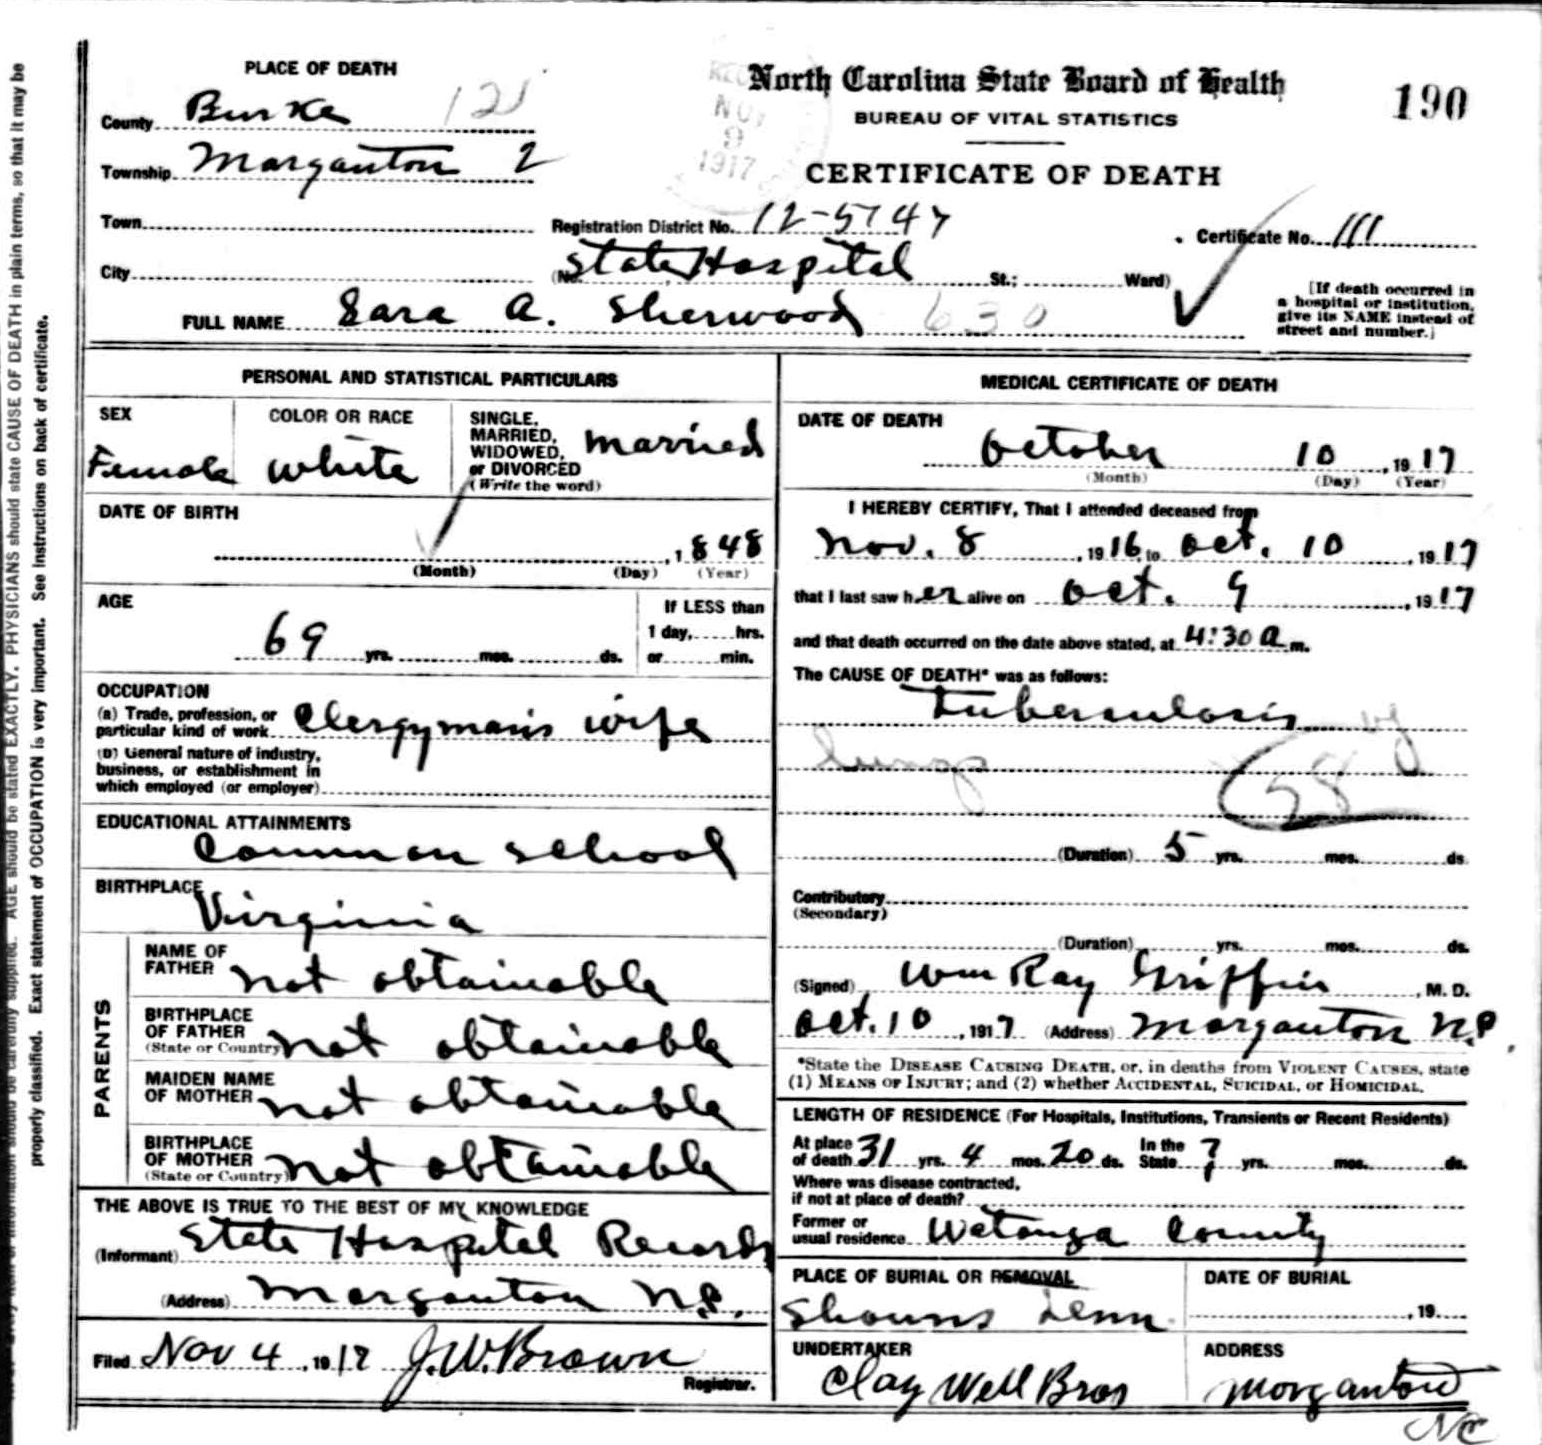 PLACE OF DEATH
North Carolina State Board of Health
190
BUREAU OF VITAL STATISTICS
CERTIFICATE OF DEATH
NOV
9
1917
County Burke 121
Township Morganton 2
Town
Registration District No. 12-5747
Certificate No. 111
City
(No. State Hospital St.; Ward)
[If death occurred in
a hospital or institution,
give its NAME instead of
street and number.]
FULL NAME Sara A. Sherwood 630
PERSONAL AND STATISTICAL PARTICULARS
SEX
Female
COLOR OR RACE
White
SINGLE,
MARRIED,
WIDOWED,
or DIVORCED
(Write the word)
Married
DATE OF BIRTH
, 1848
(Month) (Day) (Year)
AGE
69 yrs. mos. ds.
If LESS than
1 day, hrs.
or min.
OCCUPATION
(a) Trade, profession, or
particular kind of work Clergyman's wife
(b) General nature of industry,
business, or establishment in
which employed (or employer)
EDUCATIONAL ATTAINMENTS
Common School
BIRTHPLACE
Virginia
PARENTS
NAME OF
FATHER not obtainable
BIRTHPLACE
OF FATHER
(State or Country) not obtainable
MAIDEN NAME
OF MOTHER not obtainable
BIRTHPLACE
OF MOTHER
(State or Country) not obtainable
THE ABOVE IS TRUE TO THE BEST OF MY KNOWLEDGE
(Informant) State Hospital Records
(Address) Morganton N.C.
Filed Nov 4, 1917 J.W. Brown
Registrar.
MEDICAL CERTIFICATE OF DEATH
DATE OF DEATH
October 10, 1917
(Month) (Day) (Year)
I HEREBY CERTIFY, That I attended deceased from
Nov. 8, 1916, to Oct. 10, 1917
that I last saw her alive on Oct. 9, 1917
and that death occurred on the date above stated, at 4:30 a m.
The CAUSE OF DEATH* was as follows:
Tuberculosis of
lungs
(Duration) 5 yrs. mos. ds.
Contributory
(Secondary)
(Duration) yrs. mos. ds.
(Signed) Wm Ray Griffin, M. D.
Oct. 10, 1917 (Address) Morganton N.C.
*State the DISEASE CAUSING DEATH, or, in deaths from VIOLENT CAUSES, state
(1) MEANS OF INJURY; and (2) whether ACCIDENTAL, SUICIDAL, or HOMICIDAL.
LENGTH OF RESIDENCE (For Hospitals, Institutions, Transients or Recent Residents)
At place
of death 31 yrs. 4 mos. 20 ds.
In the
State ? yrs. mos. ds.
Where was disease contracted,
if not at place of death?
Former or
usual residence Watauga County
PLACE OF BURIAL OR REMOVAL
Shouns Tenn.
DATE OF BURIAL
, 19
UNDERTAKER
Clay Well Bros
ADDRESS
Morganton
NC
properly classified. Exact statement of OCCUPATION is very important. See instructions on back of certificate.
information should be carefully supplied. AGE should be stated EXACTLY. PHYSICIANS should state CAUSE OF DEATH in plain terms, so that it may be